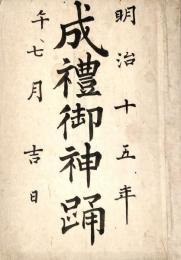 明治十五年
成禮御神踊
午七月吉日